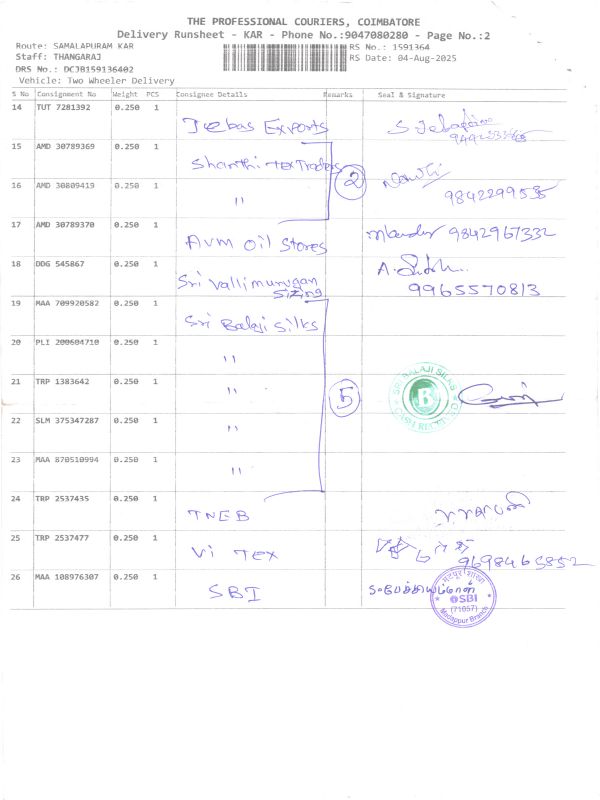 THE PROFESSIONAL COURIERS, COIMBATORE
Delivery Runsheet - KAR - Phone No.:9047080280 - Page No.:2
Route: SAMALAPURAM KAR RS No.: 1591364
Staff: THANGARAJ RS Date: 04-Aug-2025
DRS No.: DCJB159136402
Vehicle: Two Wheeler Delivery
S No Consignment No Weight PCS Consignee Details Remarks Seal & Signature
14 TUT 7281392 0.250 1 Jebas Exports
15 AMD 30789369 0.250 1 Shanthi tex Traders
2
16 AMD 30809419 0.250 1 " 9842299535
17 AMD 30789370 0.250 1 AVM Oil Stores 9842967332
18 DDG 545867 0.250 1 Sri Vallimurugan Sizing
9965570813
19 MAA 709920582 0.250 1 Sri Balaji Silks
20 PLI 200604710 0.250 1 "
21 TRP 1383642 0.250 1 " 5 SRI BALAJI SILKS B
22 SLM 375347287 0.250 1 "
23 MAA 870510994 0.250 1 "
24 TRP 2537435 0.250 1 TNEB
25 TRP 2537477 0.250 1 Vi Tex 9698465852
26 MAA 108976307 0.250 1 SBI
SBI
(71057)
Madappur Branch